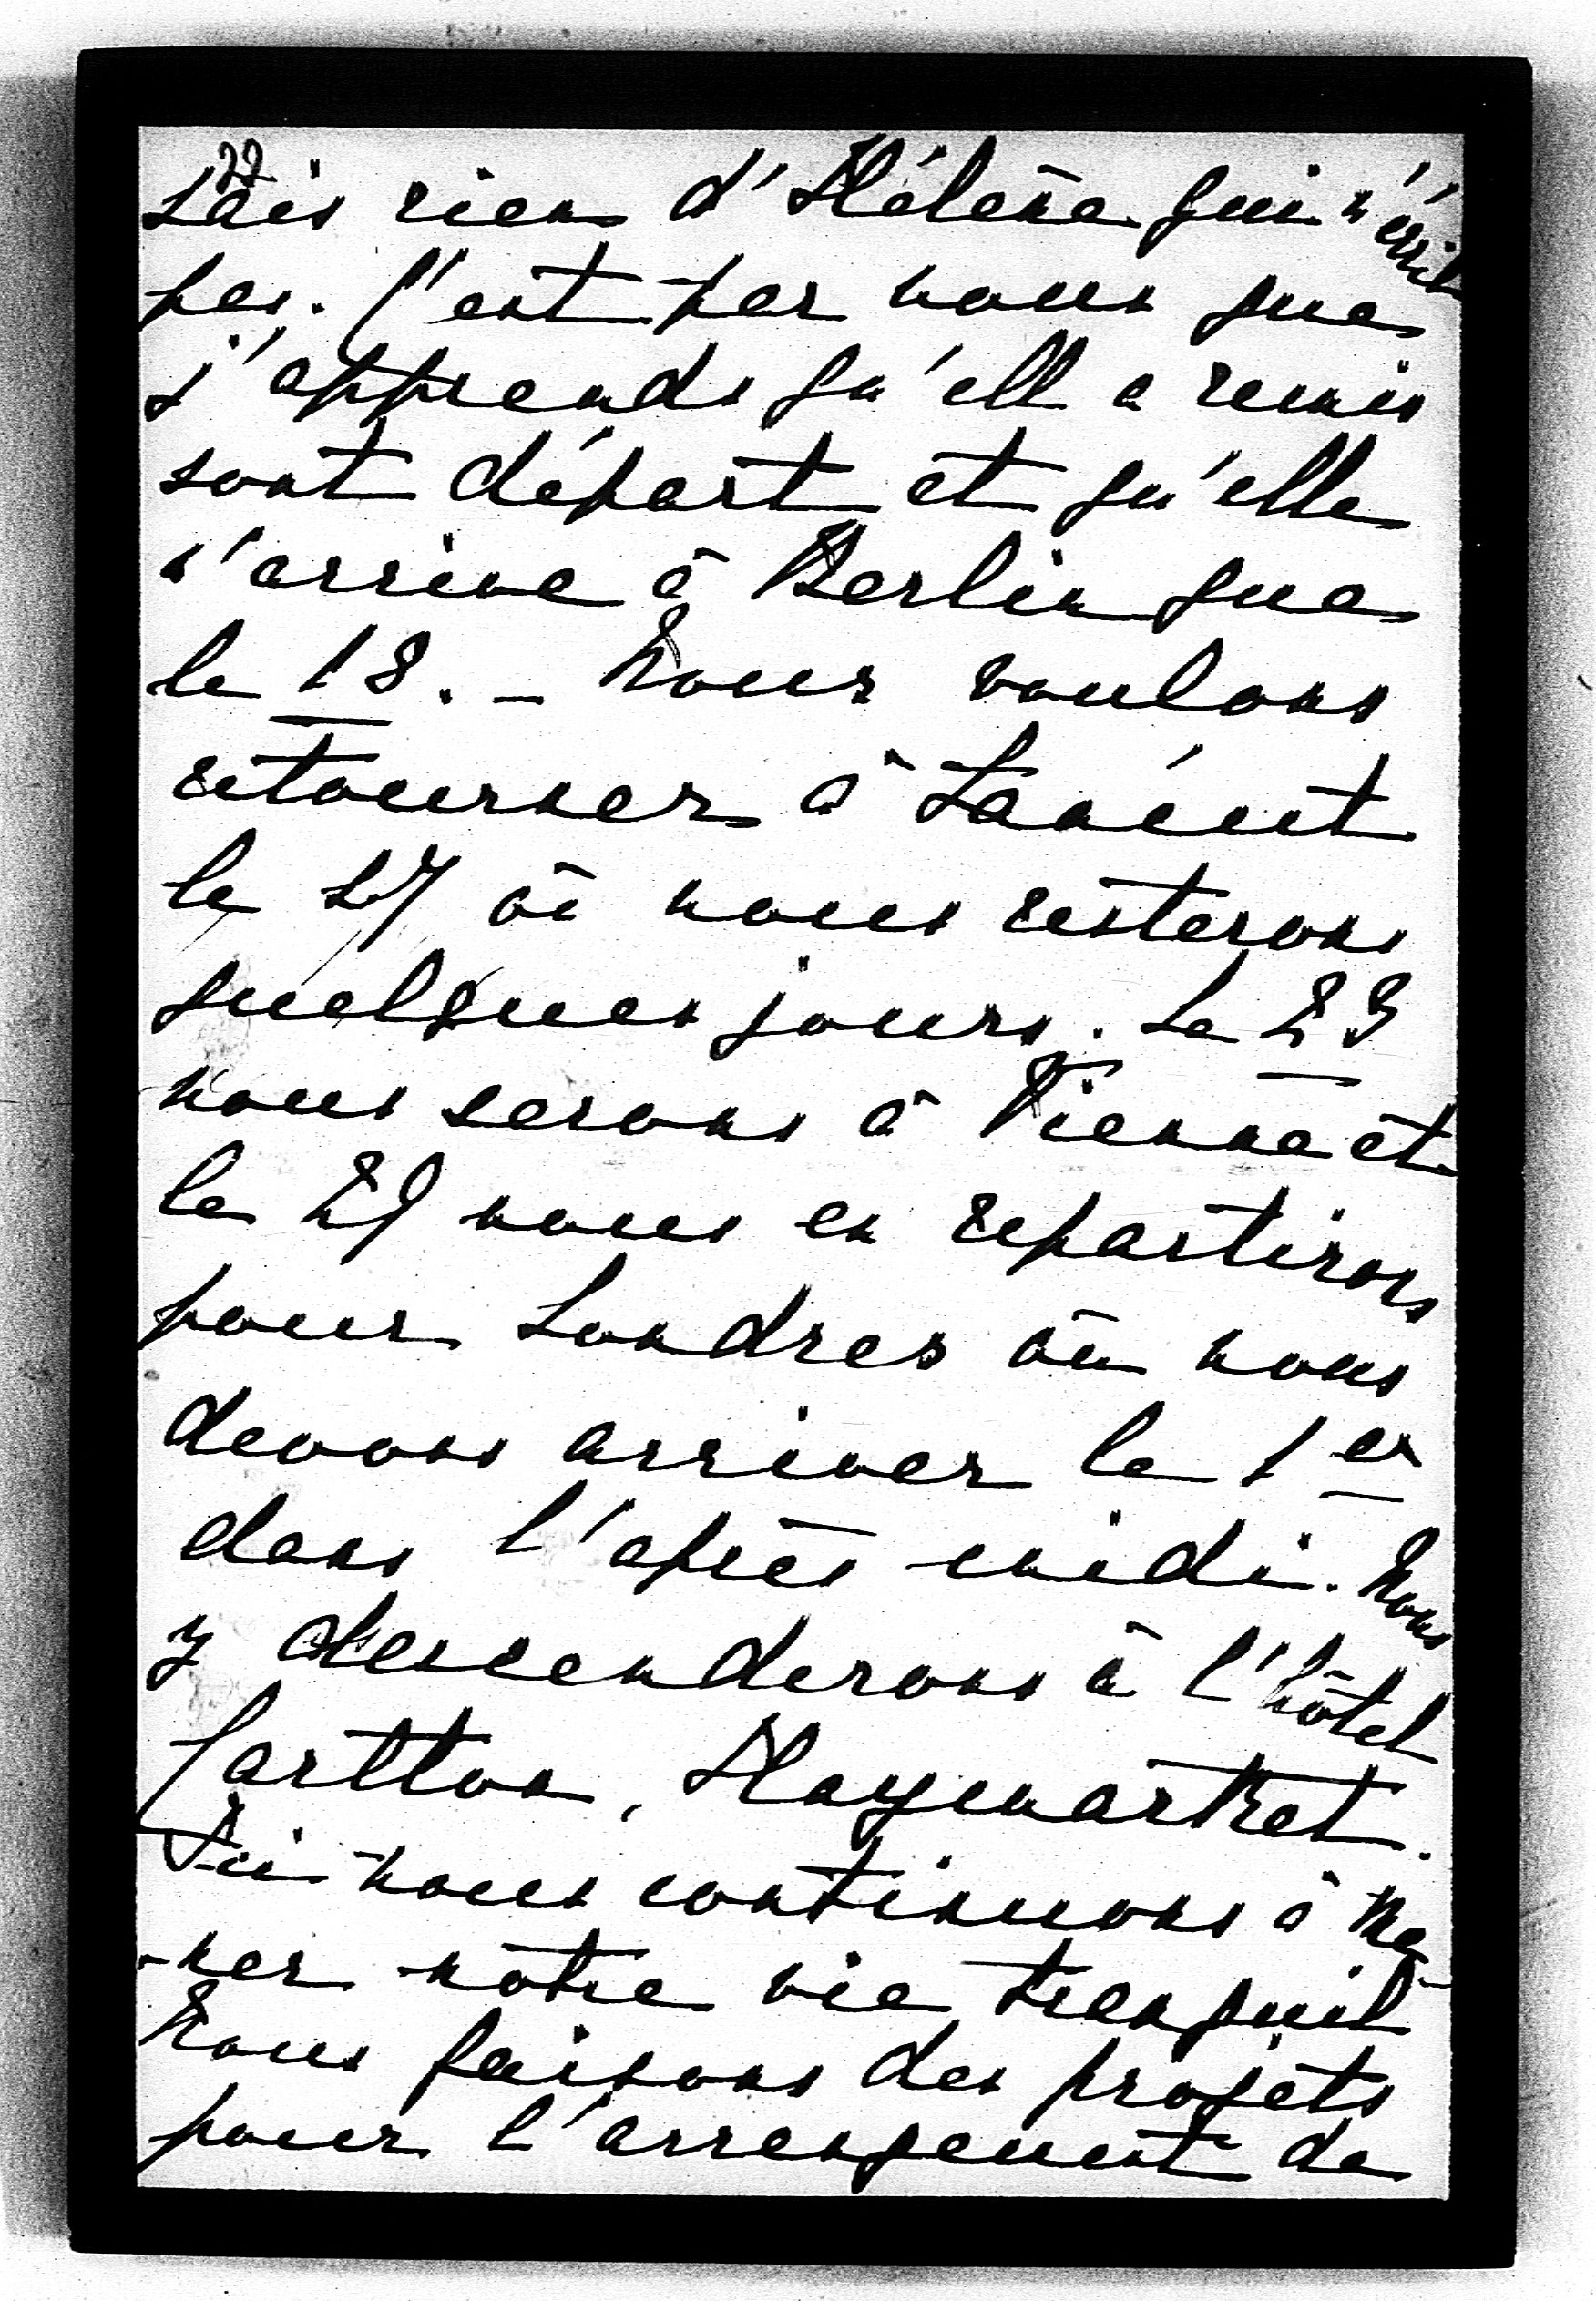 22
sais rien d'Hélène qui n'écrit
pas. C'est par vous que
j'apprends qu'elle a remis
sont départ et qu'elle
n'arrive à Berlin que
le 18. – Nous voulons
retourner à Lancut
le 17 où nous resterons
quelques jours. Le 23
nous serons à Vienne et
le 29 nous en repartirons
pour Londres où nous
devons arriver le 1er
dans l'après midi. Nous
y descenderons à l'hôtel
Carlton, Haymarket.
Ici nous continuons à me-
-ner nôtre vie tranquil
Nous faisons des projets
pour l'arrangement de